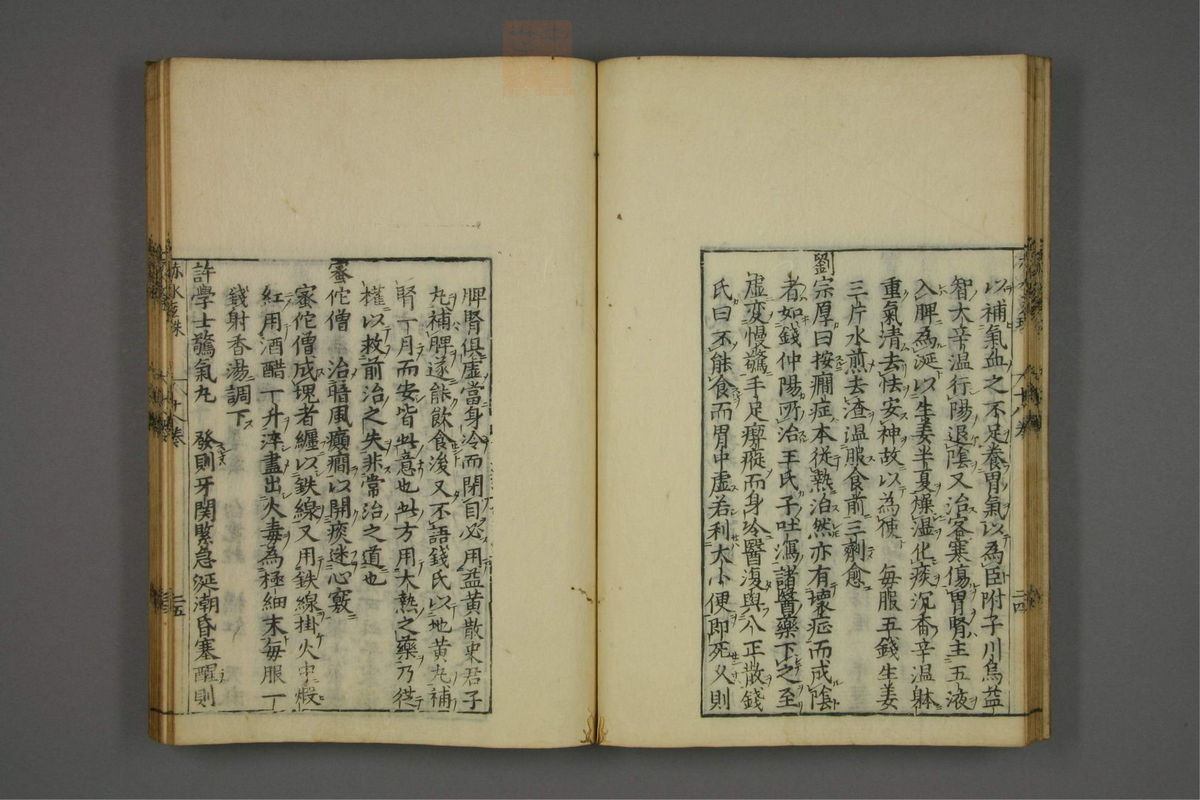 以補氣血之不足養胃氣以為臣附子川烏益
智大辛温行陽退陰又治客寒傷胃腎主五液
入脾為涎以生姜半夏燥湿化痰沉香辛温躰
重氣清去怯安神故以為使 毎服五錢生姜
三片水煎去渣温服食前三劑愈
劉宗厚曰按癇症本從熱泊然亦有壞症而成陰
者如錢仲陽所治王氏子吐瀉諸醫藥下之至
虚変慢驚手足瘈瘲而身冷醫復與八正散錢
氏曰不能食而胃中虚若利大小便即死久則
脾腎俱虚當身冷而閉目必用益黄散使君子
丸補脾遂能飲食後又不語錢氏以地黄丸補
腎一月而安皆此意也此方用大熱之藥乃從
權以救前治之失非常治之道也
蜜佗僧 治暗風癲癇以開痰迷心竅
蜜佗僧成塊者纏以鉄線又用鉄線掛火中煅
紅用酒醋一升淬盡出火毒為極細末毎服一
錢射香湯調下
許學士驚氣丸 發則牙関緊急涎潮昏塞醒則
赤水玄珠 卷 二五